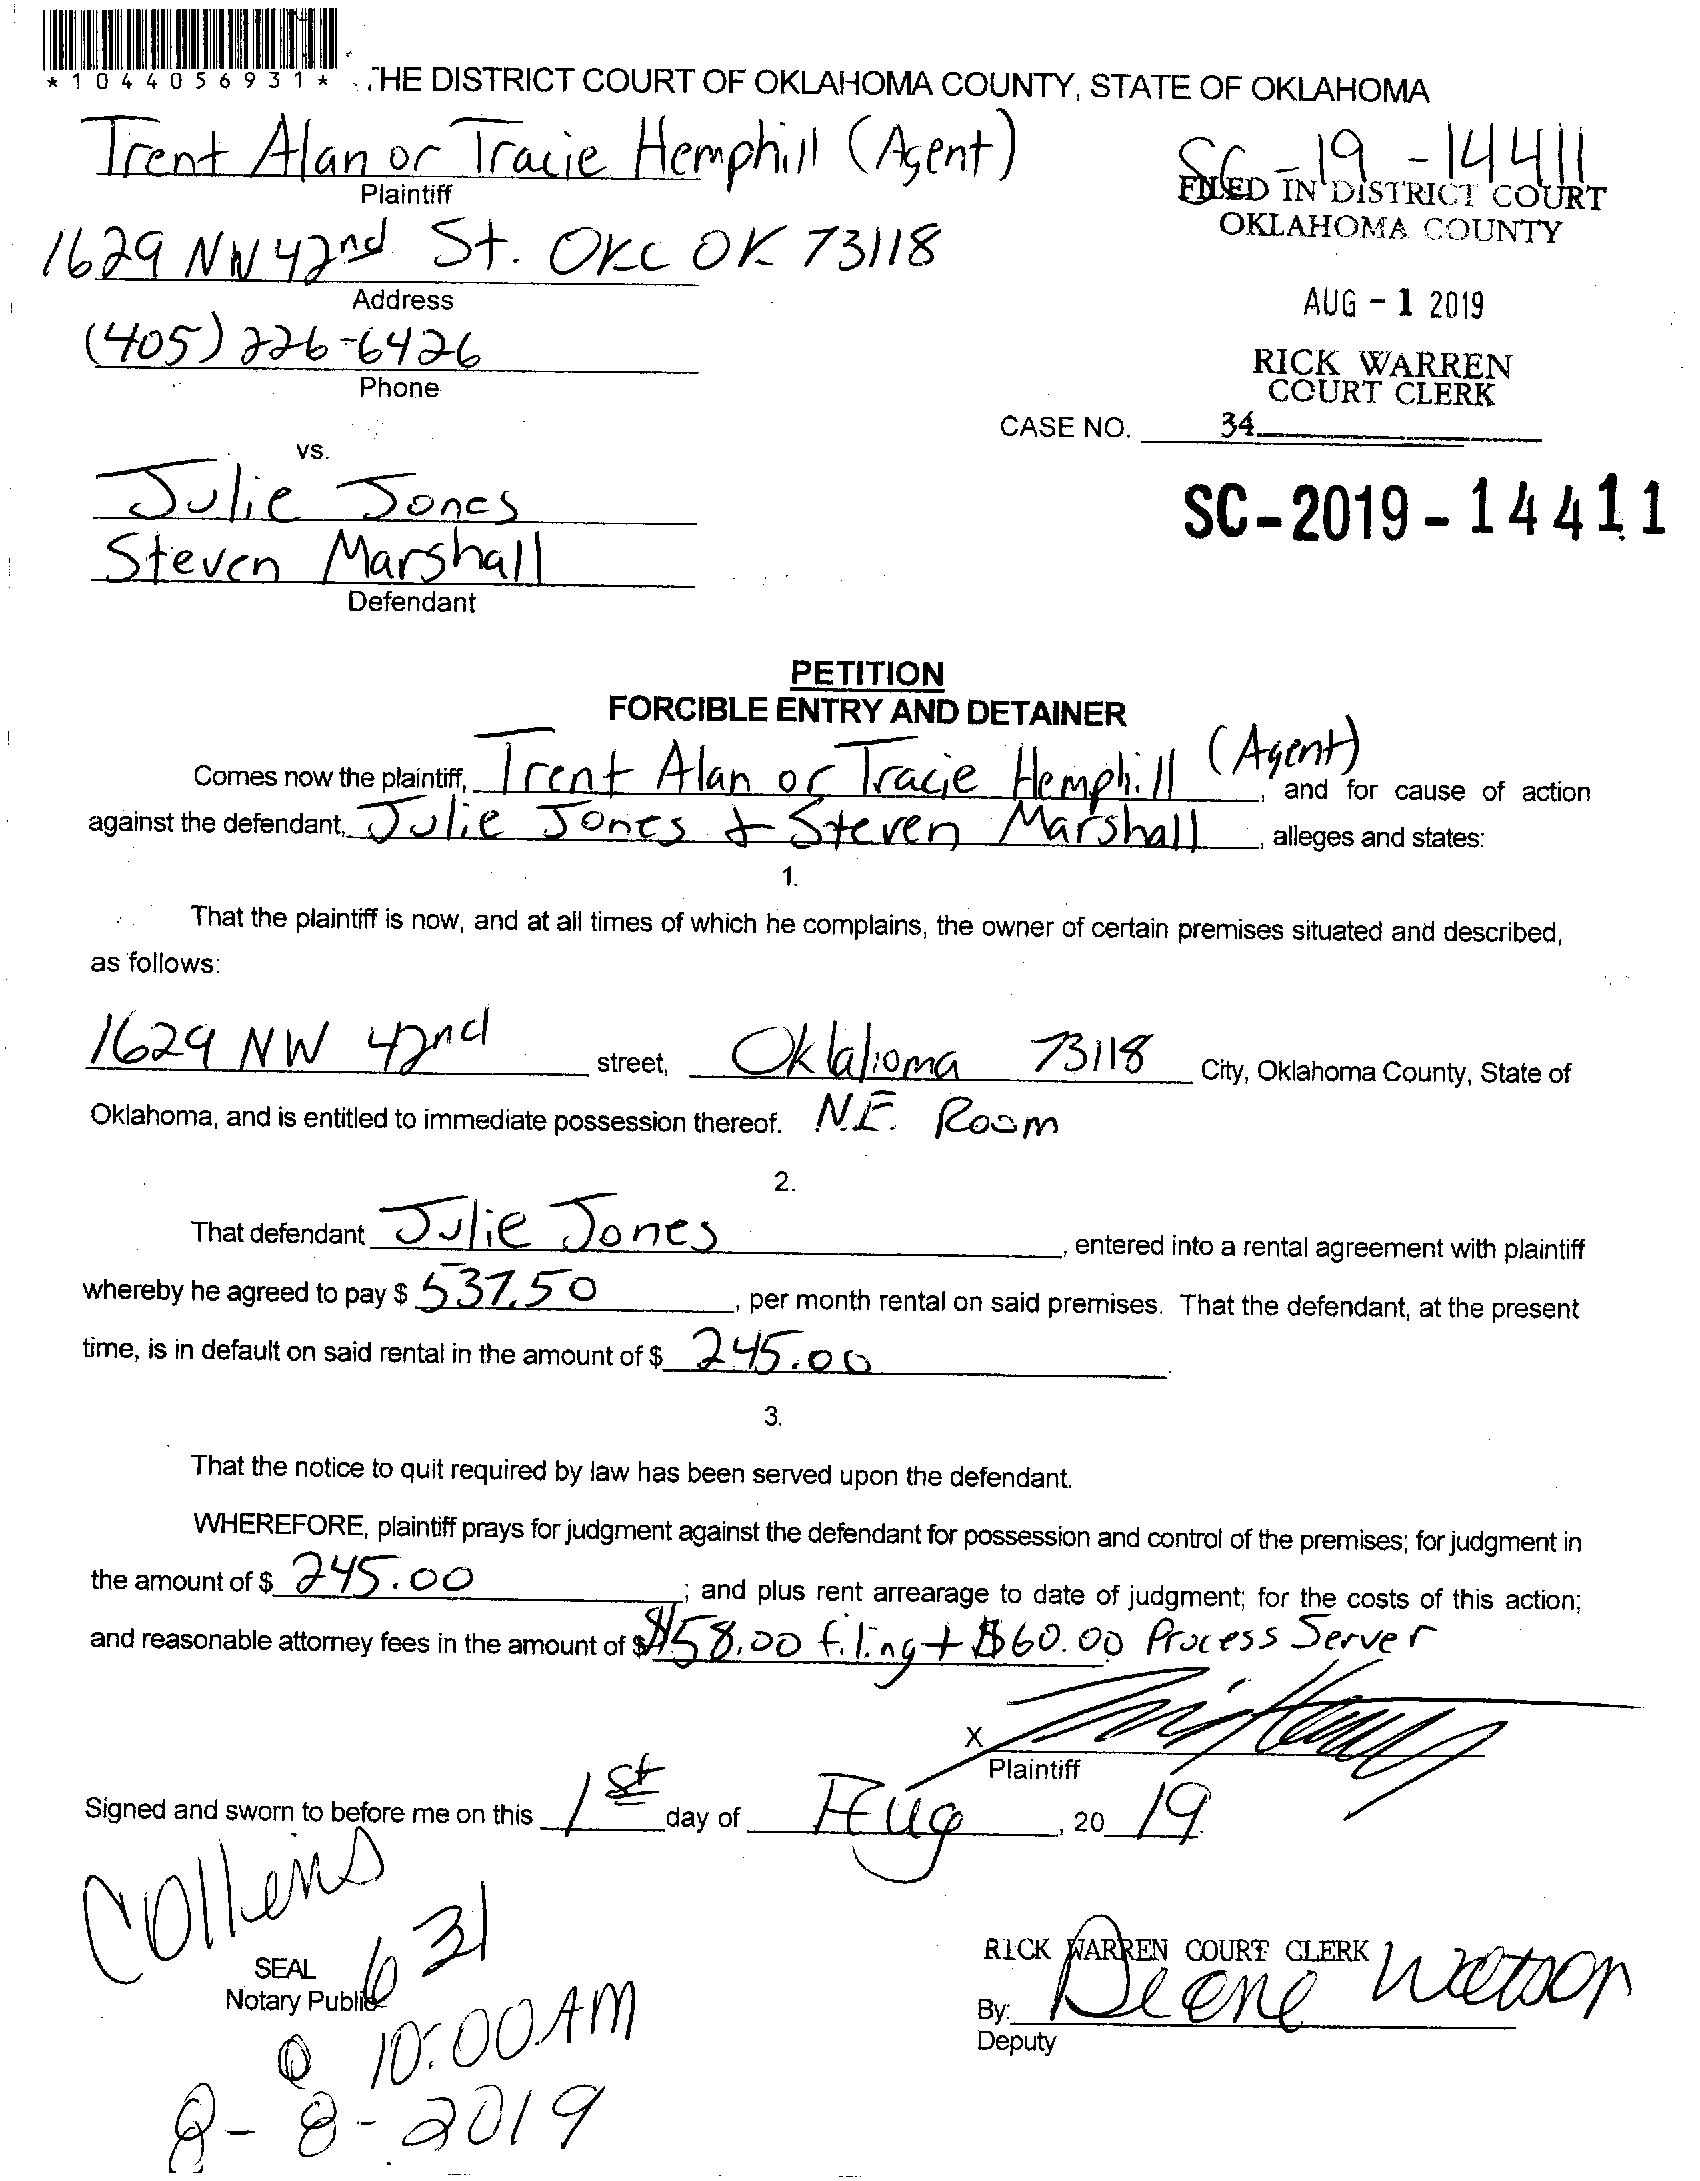 *1044056931*
THE DISTRICT COURT OF OKLAHOMA COUNTY, STATE OF OKLAHOMA
Trent Alan or Tracie Hemphill (Agent)
Plaintiff
SC-19-14411
FILED IN DISTRICT COURT
OKLAHOMA COUNTY
1629 NW 42nd St. OKC OK 73118
Address
AUG - 1 2019
(405) 226-6426
Phone
RICK WARREN
COURT CLERK
CASE NO. 34
vs.
Julie Jones
SC-2019-14411
Steven Marshall
Defendant
PETITION
FORCIBLE ENTRY AND DETAINER
Comes now the plaintiff, Trent Alan or Tracie Hemphill (Agent), and for cause of action
against the defendant, Julie Jones + Steven Marshall, alleges and states:
1.
That the plaintiff is now, and at all times of which he complains, the owner of certain premises situated and described,
as follows:
1629 NW 42nd street, Oklahoma 73118 City, Oklahoma County, State of
Oklahoma, and is entitled to immediate possession thereof. N.E. Room
2.
That defendant Julie Jones, entered into a rental agreement with plaintiff
whereby he agreed to pay $ 537.50, per month rental on said premises. That the defendant, at the present
time, is in default on said rental in the amount of $ 245.00.
3.
That the notice to quit required by law has been served upon the defendant.
WHEREFORE, plaintiff prays for judgment against the defendant for possession and control of the premises; for judgment in
the amount of $ 245.00; and plus rent arrearage to date of judgment; for the costs of this action;
and reasonable attorney fees in the amount of $ $58.00 filing + $60.00 Process Server
X
Plaintiff
Signed and sworn to before me on this 1st day of Aug, 20 19.
Collens
SEAL
Notary Public
631
RICK WARREN COURT CLERK
By: Deone Watson
Deputy
@ 10:00 AM
8-8-2019